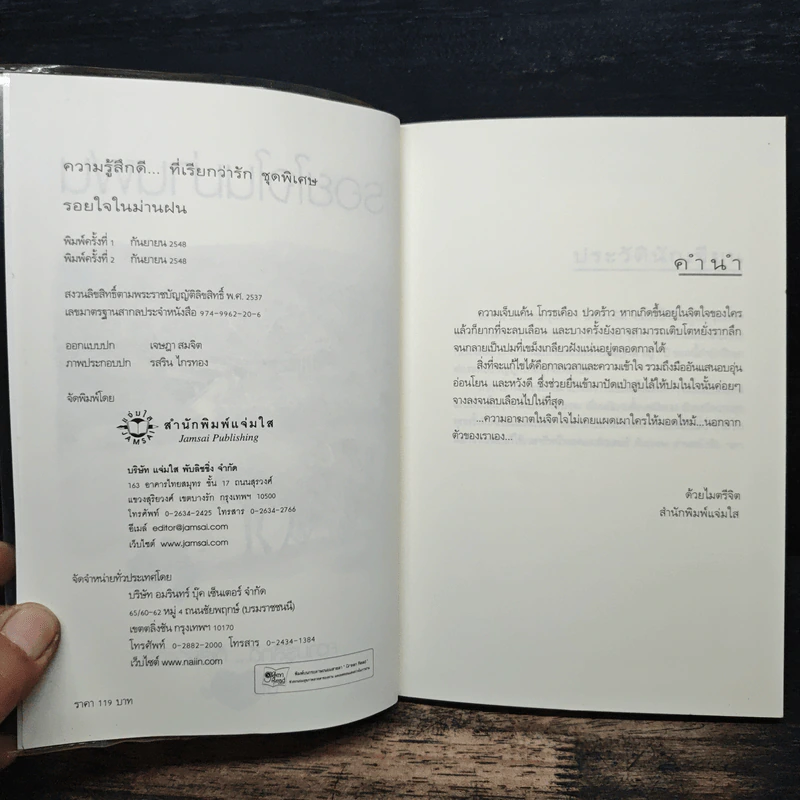 ความรู้สึกดี... ที่เรียกว่ารัก ชุดพิเศษ
รอยใจในม่านฝน
พิมพ์ครั้งที่ 1 กันยายน 2548
พิมพ์ครั้งที่ 2 กันยายน 2548
สงวนลิขสิทธิ์ตามพระราชบัญญัติลิขสิทธิ์ พ.ศ. 2537
เลขมาตรฐานสากลประจำหนังสือ 974-9962-20-6
ออกแบบปก เจษฎา สมจิต
ภาพประกอบปก รสริน ไกรทอง
จัดพิมพ์โดย
แจ่มใส
JAMSAI
สำนักพิมพ์แจ่มใส
Jamsai Publishing
บริษัท แจ่มใส พับลิชชิ่ง จำกัด
163 อาคารไทยสมุทร ชั้น 17 ถนนสุรวงศ์
แขวงสุริยวงศ์ เขตบางรัก กรุงเทพฯ 10500
โทรศัพท์ 0-2634-2425 โทรสาร 0-2634-2766
อีเมล์ editor@jamsai.com
เว็บไซต์ www.jamsai.com
จัดจำหน่ายทั่วประเทศโดย
บริษัท อมรินทร์ บุ๊ค เซ็นเตอร์ จำกัด
65/60-62 หมู่ 4 ถนนชัยพฤกษ์ (บรมราชชนนี)
เขตตลิ่งชัน กรุงเทพฯ 10170
โทรศัพท์ 0-2882-2000 โทรสาร 0-2434-1384
เว็บไซต์ www.naiin.com
ราคา 119 บาท
คำนำ
ความเจ็บแค้น โกรธเคือง ปวดร้าว หากเกิดขึ้นอยู่ในจิตใจของใคร
แล้วก็ยากที่จะลบเลือน และบางครั้งยังอาจสามารถเติบโตหยั่งรากลึก
จนกลายเป็นปมที่เขม็งเกลียวฝังแน่นอยู่ตลอดกาลได้
สิ่งที่จะแก้ไขได้คือกาลเวลาและความเข้าใจ รวมถึงมืออันแสนอบอุ่น
อ่อนโยน และหวังดี ซึ่งช่วยยื่นเข้ามาปัดเป่าลูบไล้ให้ปมในใจนั้นค่อยๆ
จางลงจนลบเลือนไปในที่สุด
...ความอาฆาตในจิตใจไม่เคยแผดเผาใครให้มอดไหม้...นอกจาก
ตัวของเราเอง...
ด้วยไมตรีจิต
สำนักพิมพ์แจ่มใส